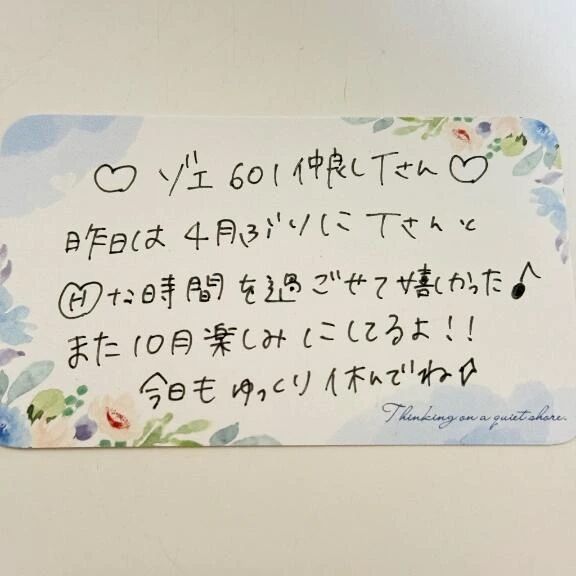 ♡ ゾエ 601 仲良しTさん ♡
昨日は 4月ぶりに Tさんと
Ⓗな時間を過ごせて嬉しかった♪
また10月楽しみにしてるよ!!
今日もゆっくり休んでね♪
Thinking on a quiet shore.